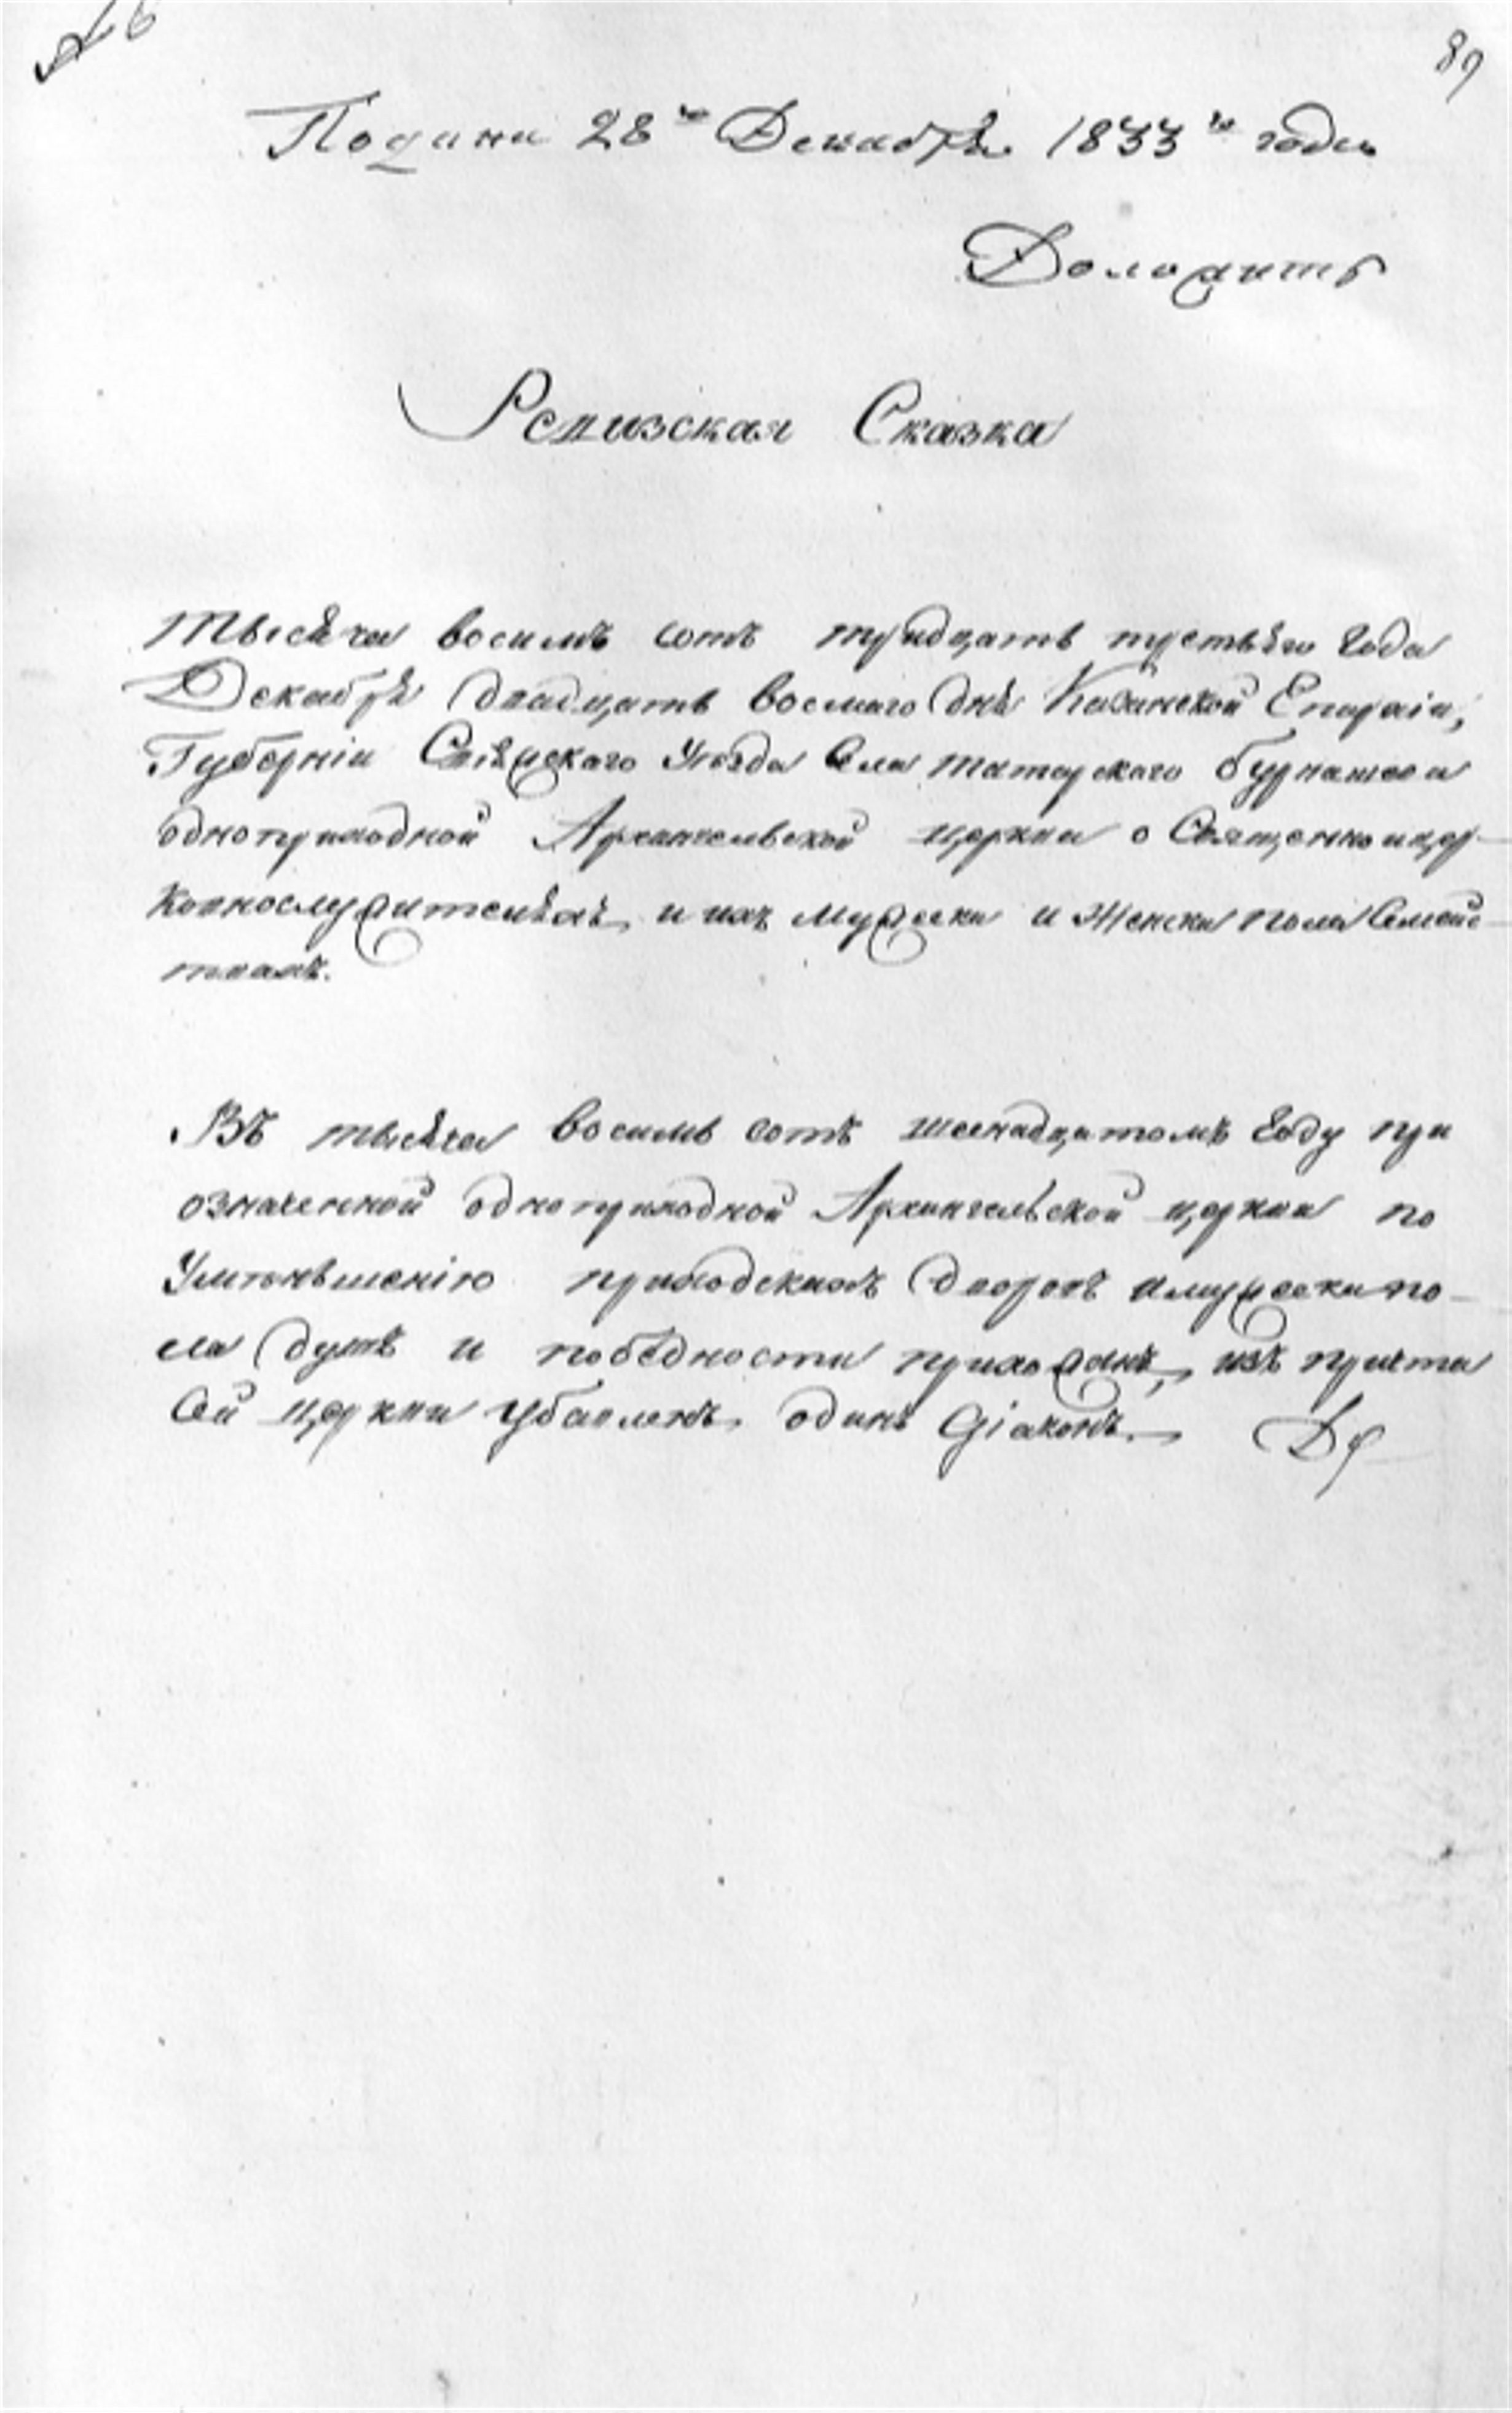 89
Подана 28го Декабря 1833го года
Доложить
Ревизская Сказка
Тысяча восимъ сотъ тридцать третьяго года
Декабря двадцать восмаго дня Казанской Епархіи,
Губерніи Свіяжскаго Уѣзда Села Татарскаго бурнашева
одноприходной Архангельской церкви о Священно и цер-
ковнослужителяхъ, и ихъ мужеска и Женска пола Семейс-
твахъ.
Въ тысяча восимь сотъ шеснадцатомъ году при
означенной одноприходной Архангельской церкви по
Уменьшенію приходскихъ дворовъ и мужеска по-
ла душъ и по бѣдности прихожанъ, изъ причта
Сей церкви убавленъ одинъ діаконъ.